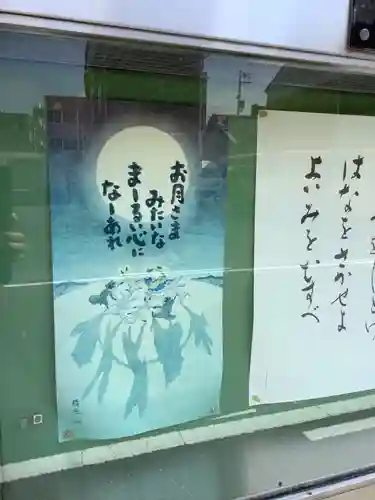 お月さま
みたいな
まーるい心に
なーあれ
はなをさかせよ
よいみをむすべ